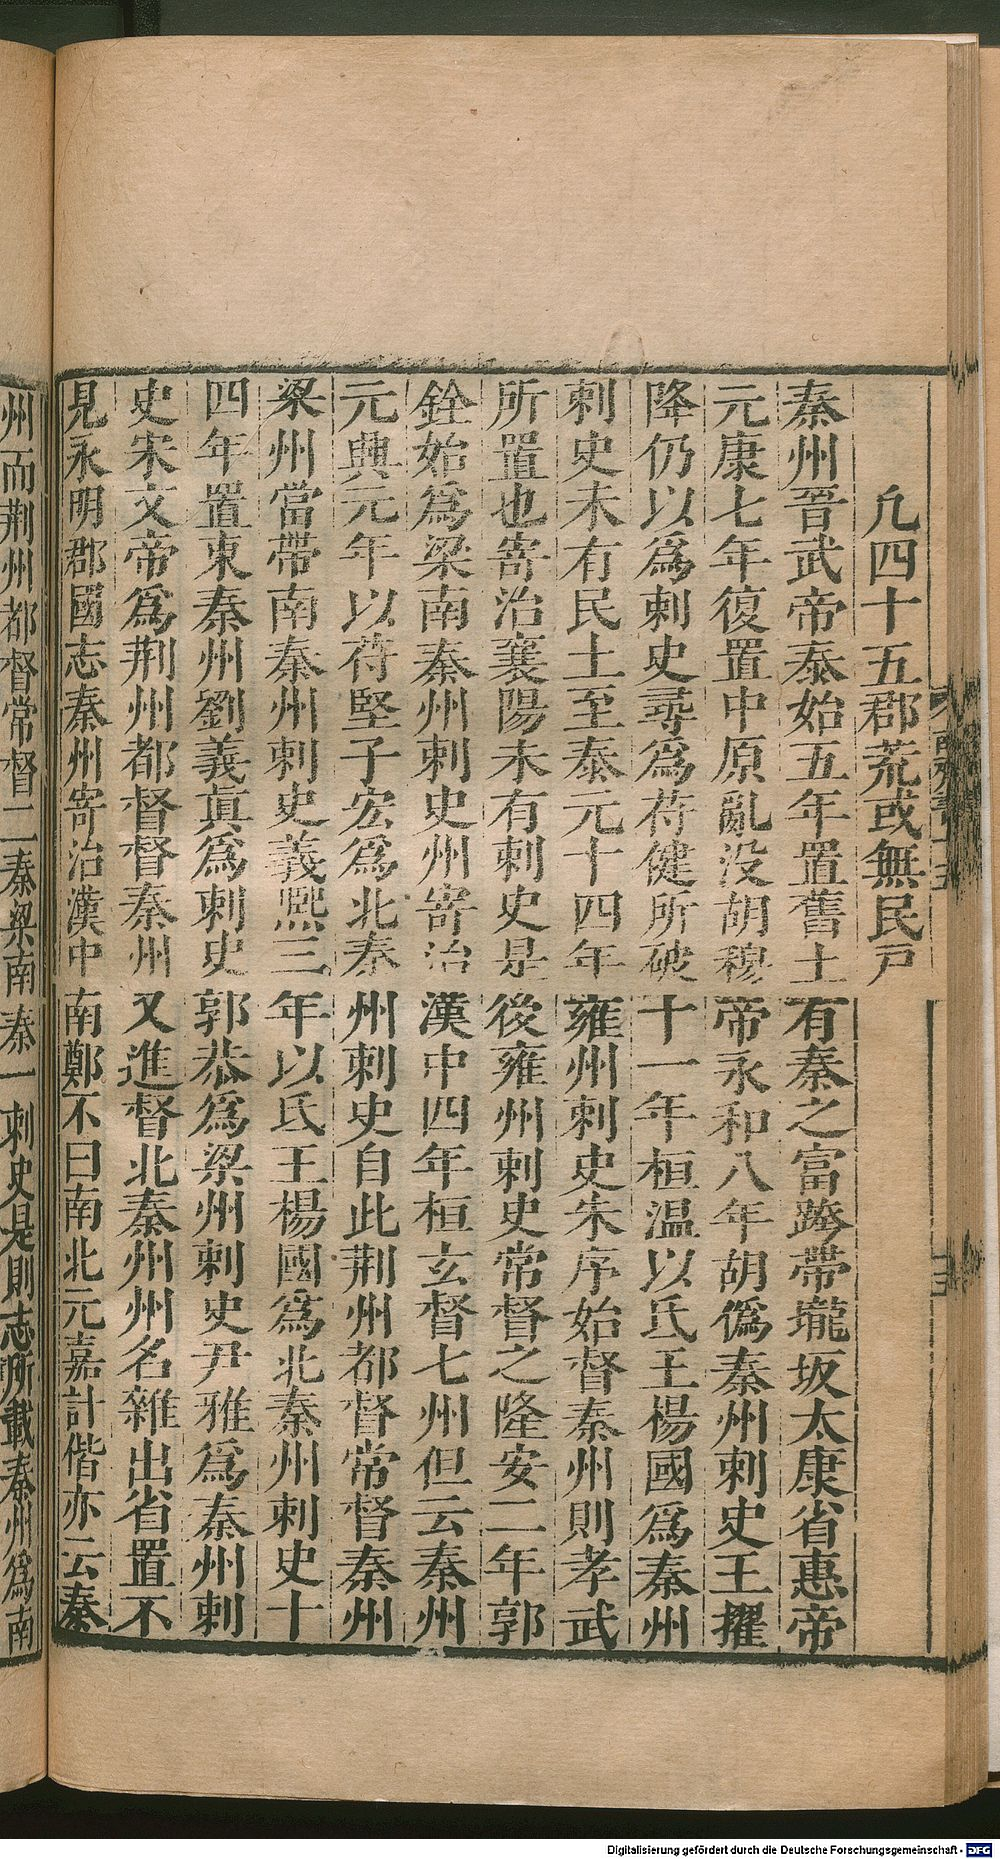 凢四十五郡荒或無民戸
秦州晉武帝泰始五年置舊土有秦之富跨帶壠坂太康省惠帝
元康七年復置中原亂没胡穆帝永和八年胡僞秦州刺史王擢
降仍以爲刺史尋爲苻健所破十一年桓温以氐王楊國爲秦州
刺史未有民土至泰元十四年雍州刺史朱序始督秦州則孝武
所置也寄治襄陽未有刺史是後雍州刺史常督之隆安二年郭
銓始爲梁南秦州刺史州寄治漢中四年桓玄督七州但云秦州
元興元年以苻堅子宏爲北秦州刺史自此荆州都督常督秦州
梁州當帶南秦州刺史義熙三年以氐王楊國爲北秦州刺史十
四年置東秦州劉義眞爲刺史郭恭爲梁州刺史尹雅爲秦州刺
史宋文帝爲荆州都督督秦州又進督北秦州州名雜出省置不
見永明郡國志秦州寄治漢中南鄭不曰南北元嘉計偕亦云秦
州而荆州都督常督二秦梁南秦一刺史是則志所載秦州爲南
Digitalisierung gefördert durch die Deutsche Forschungsgemeinschaft - DFG